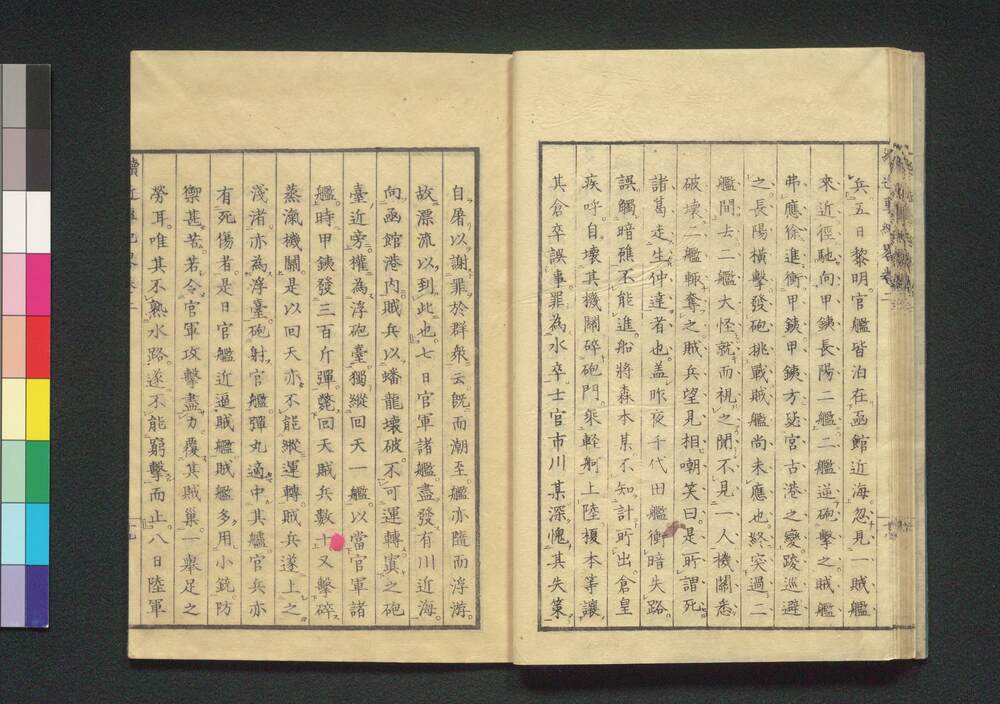 兵五日黎明。官艦皆泊在函館近海。忽見一賊艦
來近徑馳向甲鐵長陽二艦。二艦逆砲擊之。賊艦
弗應。徐進衝甲鐵。甲鐵方毖宮古港之變。踆巡避
之。長陽橫擊發砲挑戰。賊艦尚未應也。終突過二
艦間去。二艦大怪。就而視之。闃不見一人。機關悉
破壞。二艦輙奪之。賊兵望見。相嘲笑曰。是所謂死
諸葛走生仲達者也。蓋昨夜千代田艦衝暗失路。
誤觸暗礁。不能進。船將森本某不知計所出。倉皇
疾呼。自壞其機關。碎砲門。乘輕舸上陸。榎本等讓
其倉卒誤事。罪為水卒。士官市川某深愧其失策。
自屠以謝罪於群衆云。既而潮至。艦亦隨而浮游。
故漂流以到此也。七日官軍諸艦盡發有川近海。
向函館港內。賊兵以蟠龍壞破。不可運轉。寘之砲
臺近旁。權為浮砲臺。獨縱回天一艦。以當官軍諸
艦。時甲鐵發三百斤彈。斃回天賊兵數十。又擊碎
蒸氣機關。是以回天亦不能縱運轉。賊兵遂上之
淺渚。亦為浮臺。砲射官艦。彈丸適中其艫。官兵亦
有死傷者。是日官艦近逼賊艦。賊艦多用小銃防
禦甚苦。若令官軍攻擊盡力。覆其賊巢。一舉足之
勞耳。唯其不熟水路。遂不能窮擊而止。八日陸軍